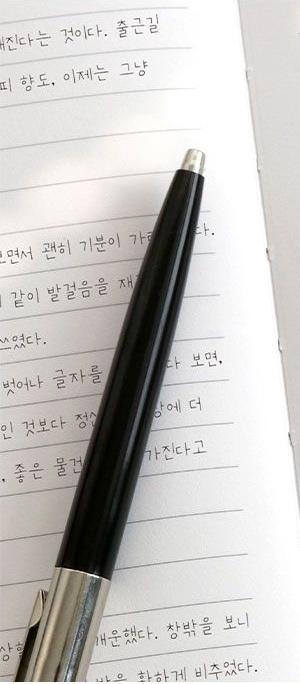 해진다는 것이다. 출근길
피 향도, 이제는 그냥
보면서 괜히 기분이 다.
같이 발걸음을
쓰였다.
벗어나 글자를 다 보면,
인 것보다 에 더
, 좋은 물건 가진다고
개운했다. 창밖을 보니
환하게 비추었다.